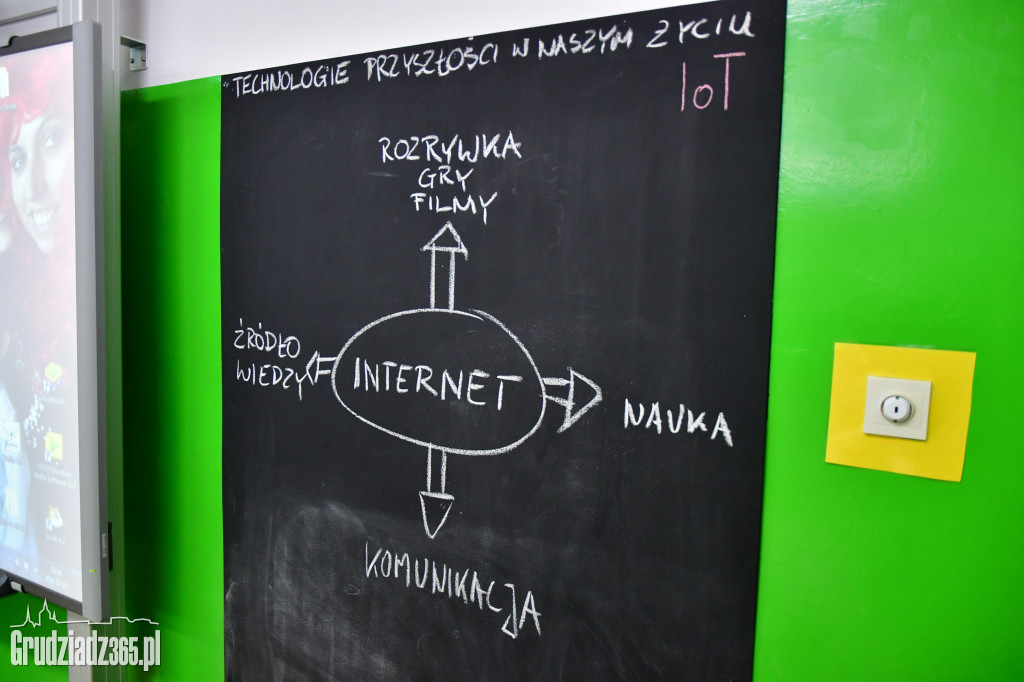 "TECHNOLOGIE PRZYSZŁOŚCI W NASZYM ŻYCIU
IoT
ROZRYWKA
GRY
FILMY
ŹRÓDŁO
WIEDZY
INTERNET
NAUKA
KOMUNIKACJA
Grudziadz365.pl